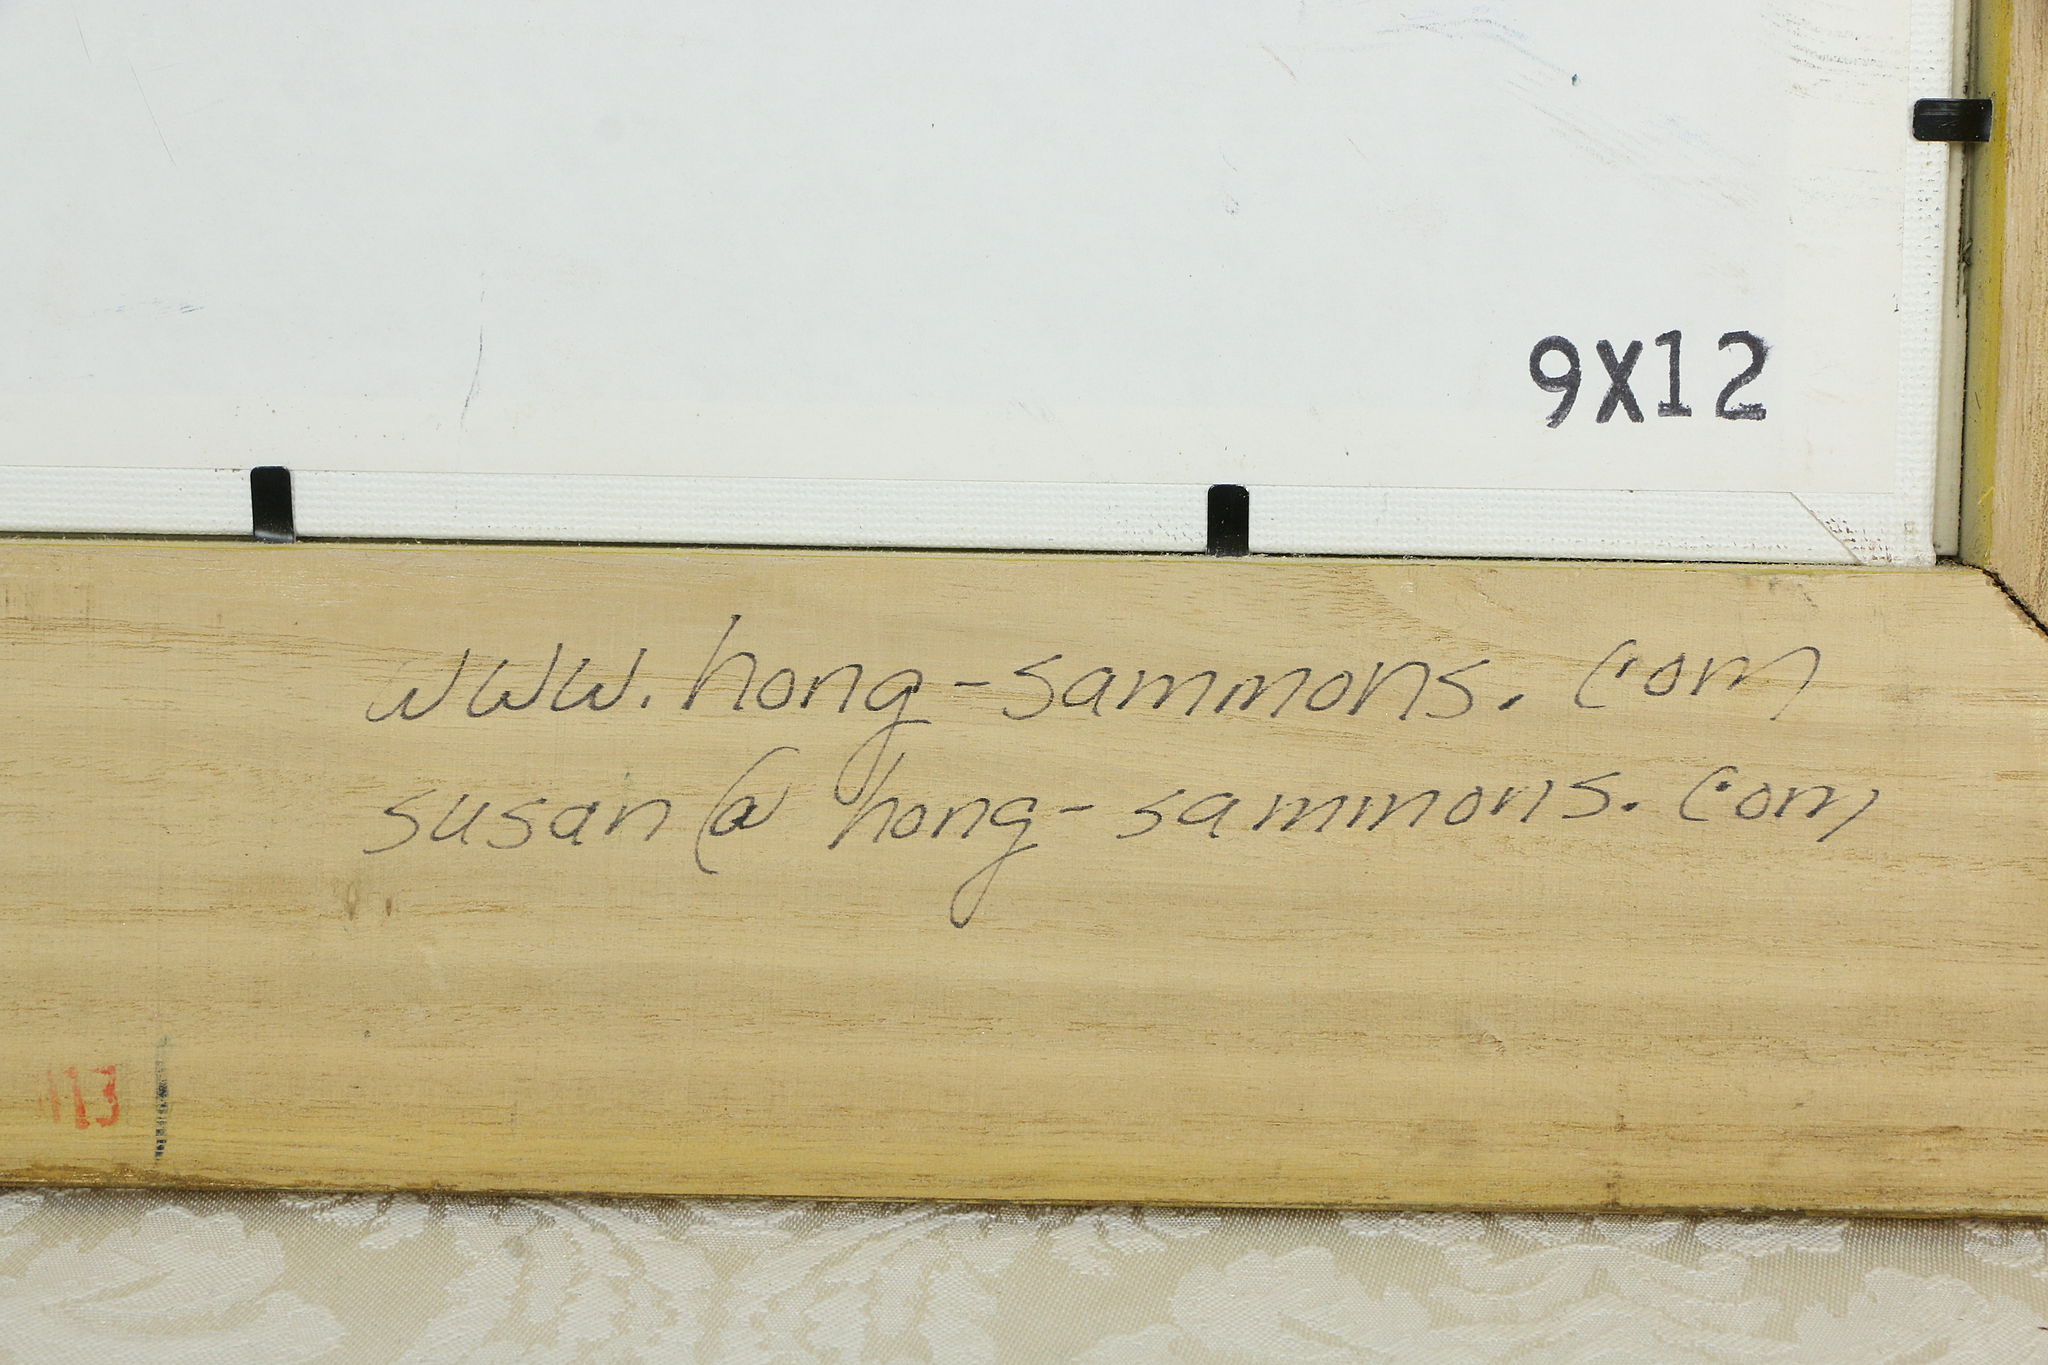 9X12
www.hong-sammons.com
susan@hong-sammons.com
113